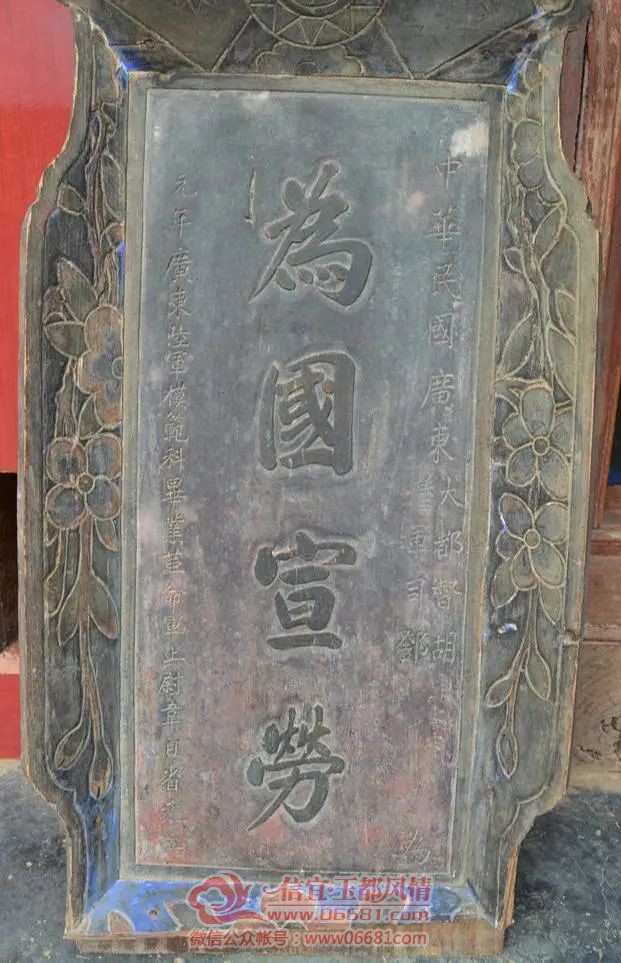 中華民國廣東大都督胡
軍司鄧
為
為國宣勞
元年廣東陸軍模範科畢業革命軍上尉韋日省
信宜·玉都风情
www.06681.com
微信公众帐号：www06681com